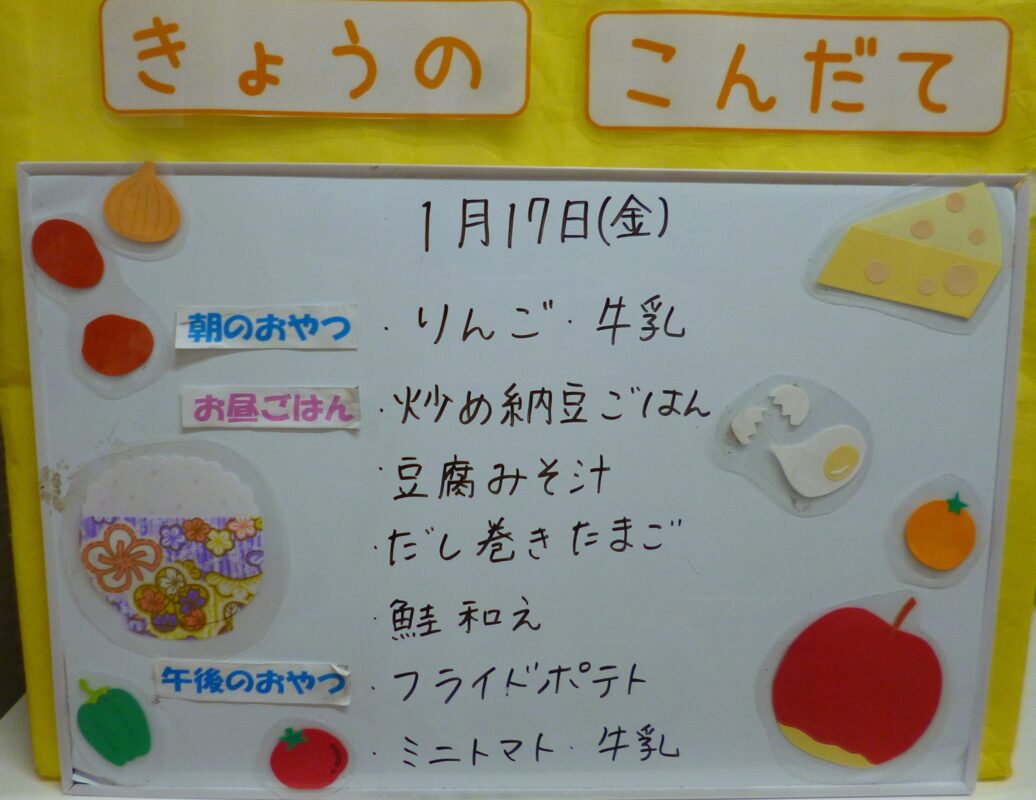 きょうの こんだて
1月17日(金)
朝のおやつ ・りんご・牛乳
お昼ごはん ・炒め納豆ごはん
・豆腐みそ汁
・だし巻きたまご
・鮭和え
午後のおやつ ・フライドポテト
・ミニトマト・牛乳